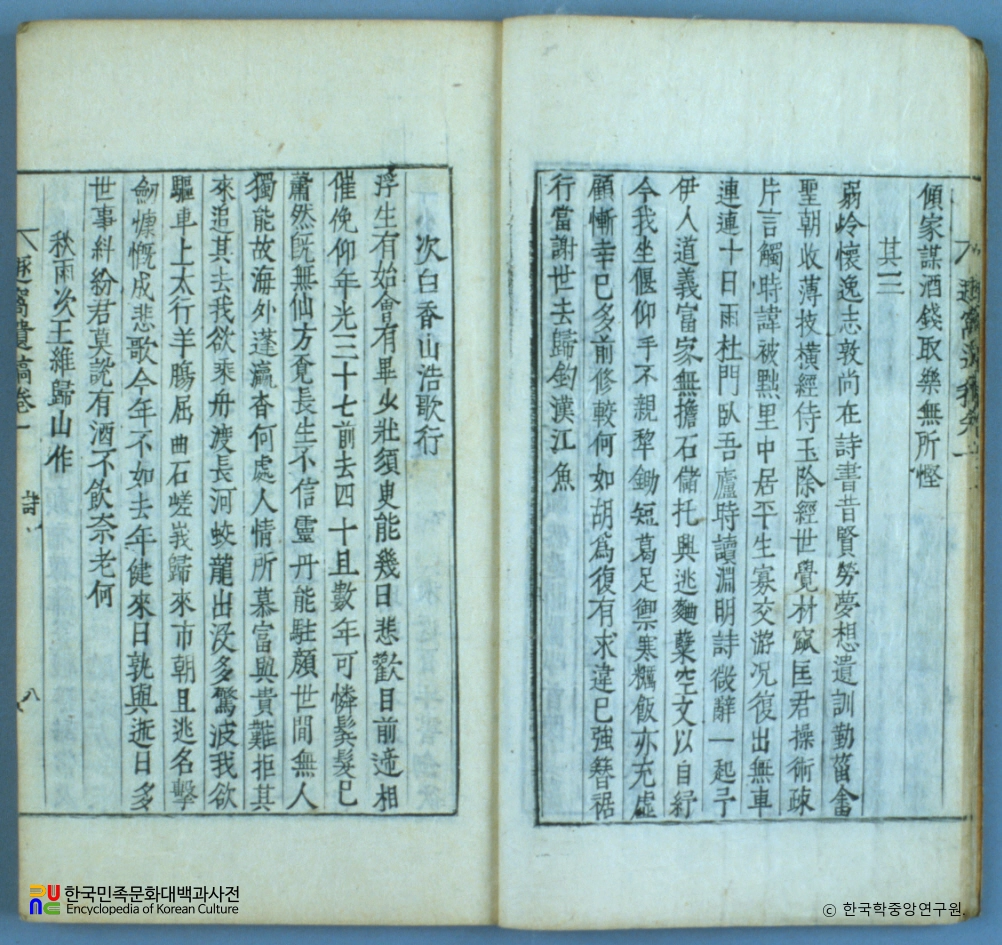 傾家謀酒錢取樂無所慳
其三
弱岭懷逸志敦尚在詩書昔賢勞夢想遺訓勤菑畬
聖朝收薄技橫經侍玉除經世覺材窳匡君操術疎
片言觸時諱被點里中居平生寡交游况復出無車
連連十日雨杜門臥吾廬時讀淵明詩微辭一起予
伊人道義富家無擔石儲托興逃麯蘖空文以自紓
今我坐偃仰手不親犁鋤短葛足禦寒糲飯亦充虛
顧慚幸已多前修較何如胡爲復有求違已強簪裾
行當謝世去歸釣漢江魚
次白香山浩歌行
浮生有始會有畢少壯須臾能幾日悲歡目前遆相
催俛仰年光三十七前去四十且數年可憐鬓髮已
蕭然旣無仙方覓長生不信靈丹能駐顏世間無人
獨能故海外蓬瀛杳何處人情所慕富與貴難拒其
來追其去我欲乘舟渡長河蛟龍出沒多驚波我欲
驅車上太行羊膓屈曲石嵯峩歸來市朝且逃名擊
劒慷慨成悲歌今年不如去年健來日孰與逝日多
世事糾紛君莫說有酒不飮奈老何
秋雨次王維歸山作
窩遺稿卷一
詩
八
한국민족문화대백과사전
Encyclopedia of Korean Culture
© 한국학중앙연구원